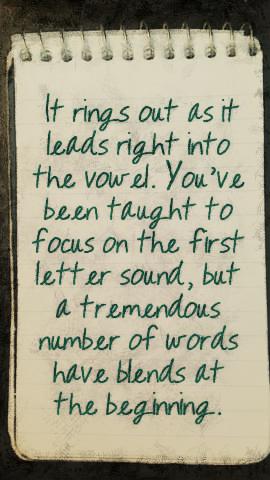 It rings out as it
leads right into
the vowel. You've
been taught to
focus on the first
letter sound, but
a tremendous
number of words
have blends at
the beginning.